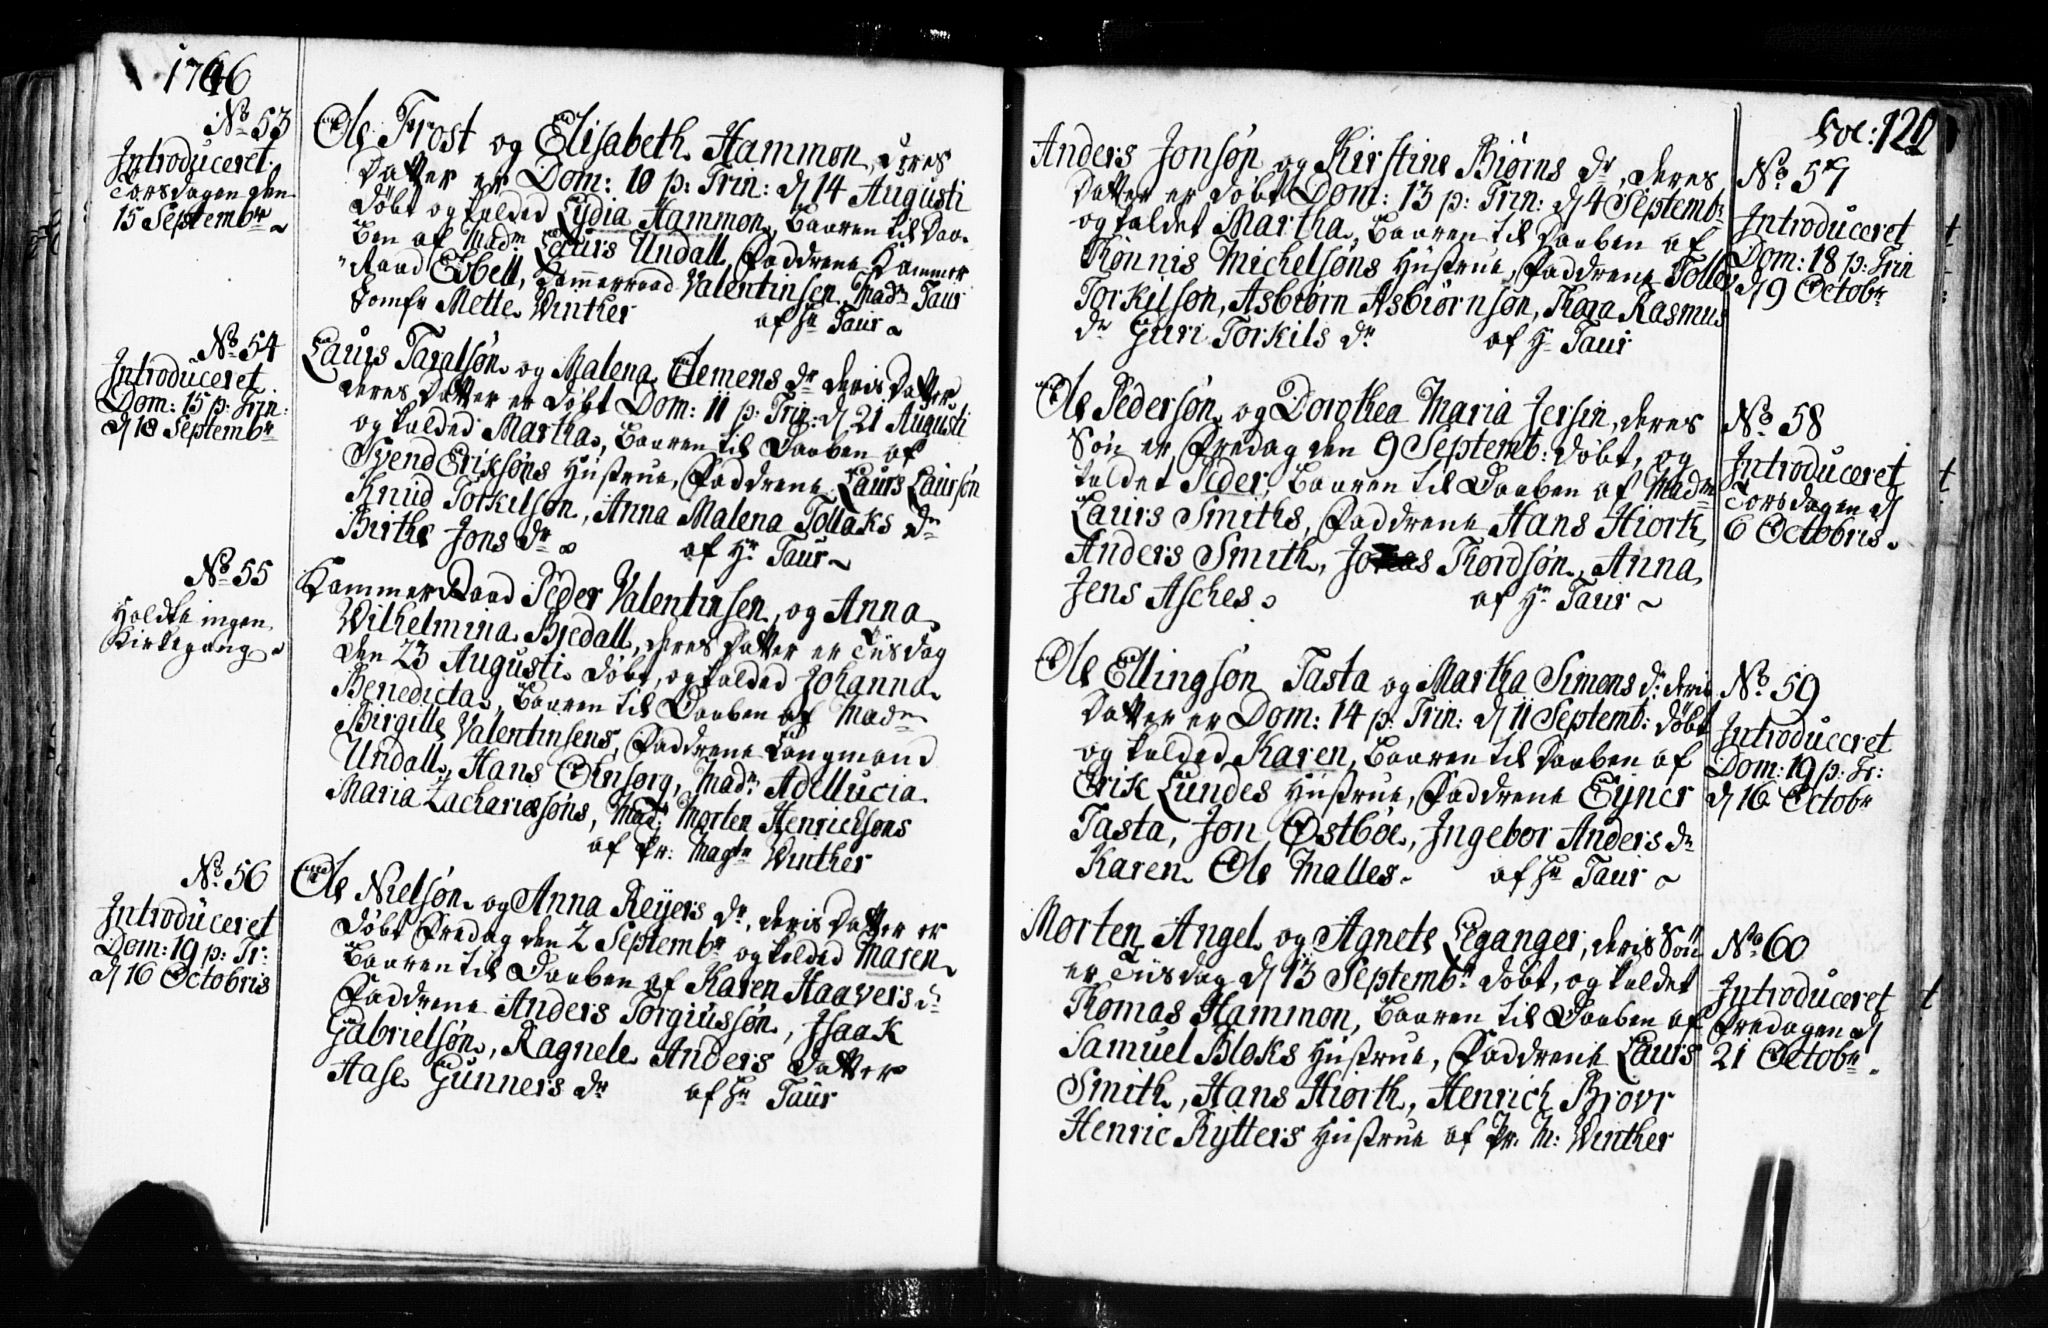 1746
No 53
Introduceret
Torsdagen den
15 Septembr
Ole Frost og Elisabeth Hammon, deres
Datter er Dom: 10 p: Trin: d 14 Augusti
døbt og kalded Lydia Hammon, Baaren til Daa-
ben af Madm Laurs Undall, Faddrene Kammer
Raad Ebbell, Kammerraad Valentinsen, Madm Taur
Jomfr Mette Winther af Hr Taur
No 54
Introduceret
Dom: 15 p: Trin:
d 18 Septembr
Laurs Taralsøn og Malena Clemens dr deris Datter
deres Datter er døbt Dom: 11 p: Trin: d 21 Augusti
og kalded Martha, Baaren til Daaben af
Svend Eriksøns Hustrue, Faddrene Laurs Laursøn
Knud Torkilsøn, Anna Malena Tollaks dr
Birthe Jons dr af Hr Taur
No 55
Holdte ingen
Kirkegang
Kammer Raad Peder Valentinsen, og Anna
Wilhelmina Bredall, deres Datter er Tiisdag
den 23 Augusti døbt, og kalded Johanna
Benedicta, Baaren til Daaben af Madm
Birgitte Valentinsens, Faddrene Laugmand
Undall, Hans Omsorg, Madm Adellucia
Maria Zachariæsøns, Mad: Morten Henricksøns
af Pr: Magr Winther
No 56
Introduceret
Dom: 19 p: Tr:
d 16 Octobris
Ole Nielsøn og Anna Reijers dr, deris Datter er
døbt Fredag den 2 Septembr og kalded Maren
Baaren til Daaben af Karen Haavers dr
Faddrene Anders Torgiussøn, Isaak
Gabrielsøn, Ragnele Anders Datter
Aase Gunners dr af Hr Taur
Fol: 120
Anders Jonsøn og Kirstine Biørns dr, deres
Datter er døbt Dom: 13 p: Trin: d 4 Septembr
og kaldet Martha, Baaren til Daaben af
Rønnis Michelsøns Hustrue, Faddrene Tolles
Torkilsøn, Asbiørn Asbiørnsøn, Thora Rasmus
dr Guri Torkils dr af Hr Taur
No 57
Introduceret
Dom: 18 p: Trin
d 9 Octobr
Ole Pedersøn og Dorothea Maria Jersin, deres
Søn er Fredag den 9 Septemb: døbt, og
kaldet Peder, Baaren til Daaben af Madm
Laurs Smiths, Faddrene Hans Hiorth
Anders Smith, Thordsøn, Anna
Jens Asches af Hr Taur
No 58
Introduceret
Torsdagen d
6 Octobris
Ole Ellingsøn Tasta og Martha Simens dr deris
Datter er Dom: 14 p: Trin: d 11 Septemb: døbt
og kalded Karen, Baaren til Daaben af
Erik Lundes Hustrue, Faddrene Eyner
Tasta, Jon Østbøe, Ingebor Anders dr
Karen Ole Malles af Hr Taur
No 59
Introduceret
Dom: 19 p: Tr:
d 16 Octobr
Morten Angel og Agnete Leganger, deris Søn
er Tiisdag d 13 Septembr døbt, og kaldet
Thomas Hammon, Baaren til Daaben af
Samuel Bloks Hustrue, Faddrene Laurs
Smith, Hans Hiorth, Henrich Brovr
Henric Rytters Hustrue af Pr: M: Winther
No 60
Introduceret
Fredagen d
21 Octobr